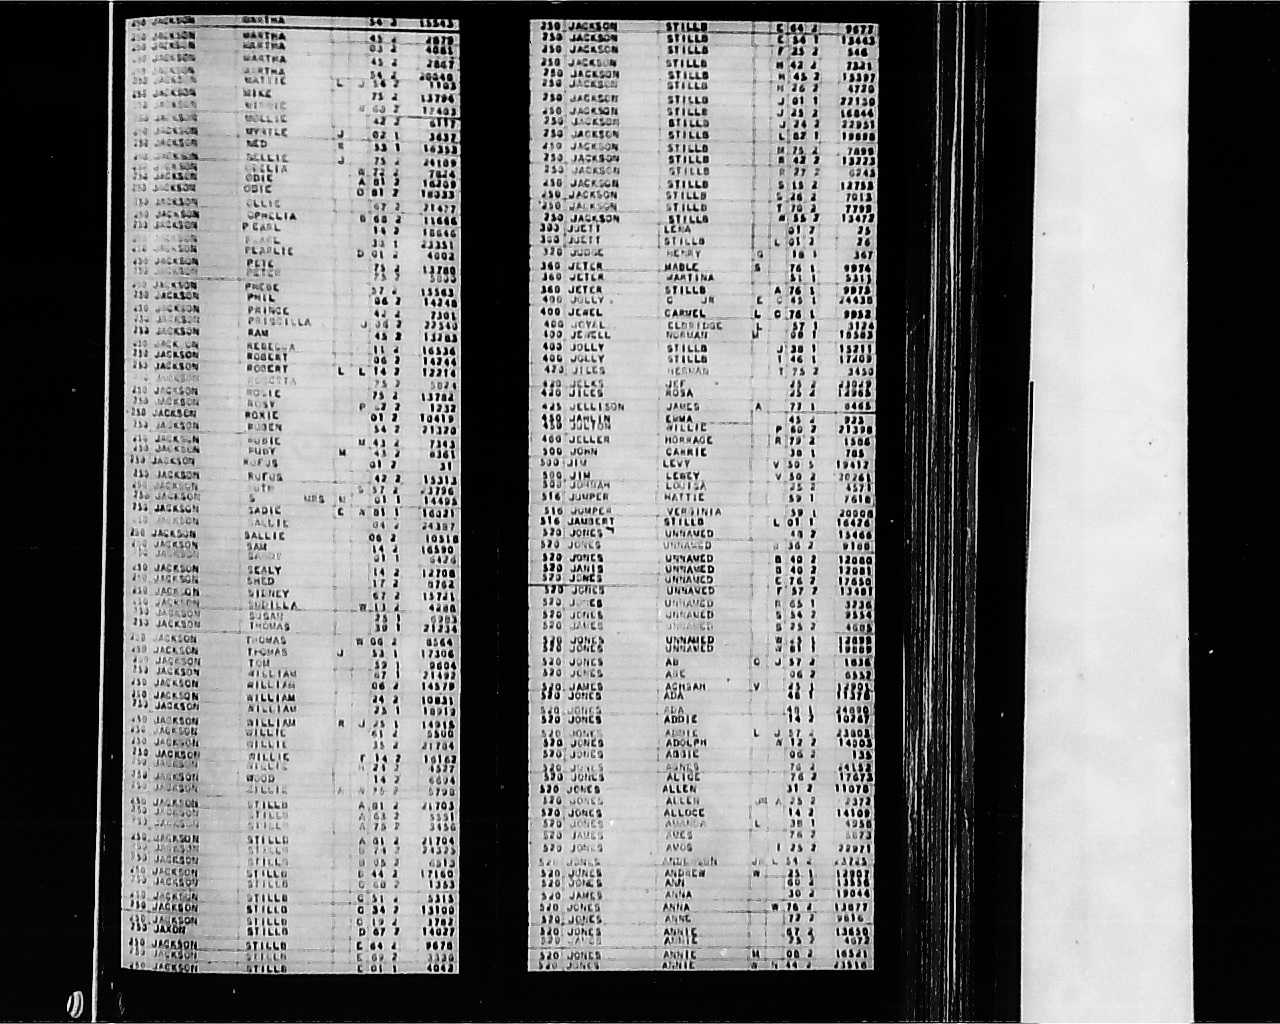 250 JACKSON MARTHA 54 2 15543
250 JACKSON MARTHA 45 2 2879
250 JACKSON MARTHA 03 2 4085
250 JACKSON MARTHA 45 2 2867
250 JACKSON MARTHA 54 2
250 JACKSON MATTIE L J 54 2 1103
250 JACKSON MIKE 75 2 13796
250 JACKSON 17403
250 JACKSON MOLLIE 42 2 6117
250 JACKSON MYRTLE J 02 1 3437
250 JACKSON NED 53 1 16353
250 JACKSON NELLIE J 75 2 24109
250 JACKSON 72 2 7024
250 JACKSON ODIE A 01 2 16209
250 JACKSON ODIE O 01 2 16333
250 JACKSON OLLIE 67 2 21477
250 JACKSON OPHELIA B 60 2 11666
250 JACKSON PEARL 14 2
250 JACKSON PEARL 33 1 23351
250 JACKSON PEARLIE D 01 2 4002
250 JACKSON PETE 75 2 13780
250 JACKSON PETER 75 2
250 JACKSON PHEBE 57 2 15563
250 JACKSON PHIL 06 2 14240
250 JACKSON PRINCE 42 2 7301
250 JACKSON PRISCILLA J 06 2 22540
250 JACKSON RAM 45 2 13263
250 JACKSON REBECCA 11 2 16536
250 JACKSON ROBERT 06 2 14244
250 JACKSON ROBERT L L 14 2 12214
75 2 5024
250 JACKSON ROSIE 75 2 13782
250 JACKSON ROSY P 1232
250 JACKSON ROXIE 01 2 10419
250 JACKSON RUBEN 54 2 21320
250 JACKSON RUBIE M 43 2 7343
250 JACKSON RUBY M 43 2 6361
250 JACKSON RUFUS 01 2 31
250 JACKSON RUFUS 42 2 15313
250 JACKSON RUTH S 57 2 23796
250 JACKSON S MRS M 01 1 14495
250 JACKSON SADIE E A 01 1 16021
250 JACKSON SALLIE 04 2 24387
250 JACKSON SALLIE 06 2 10518
250 JACKSON SAM 14 2 16590
JACKSON 01 1 6426
250 JACKSON SEALY 14 2 12708
250 JACKSON SHED 17 2 8762
250 JACKSON SIDNEY 67 2 15721
250 JACKSON SUDILLA W 13 2 4288
250 JACKSON SUSAN 25 1 6983
250 JACKSON THOMAS 30 1 21234
250 JACKSON THOMAS W 06 2 8564
250 JACKSON THOMAS J 53 1 17306
250 JACKSON TOM 59 1 9604
250 JACKSON WILLIAM 67 1 21492
250 JACKSON WILLIAM 06 2 14579
250 JACKSON WILLIAM 24 2 10831
250 JACKSON WILLIAM 25 1 18913
250 JACKSON WILLIAM R J 25 1 14915
250 JACKSON WILLIE 61 2 5500
250 JACKSON WILLIE 35 2 21784
250 JACKSON WILLIE F 14 2 16162
250 JACKSON WILLIE 25 2 4527
250 JACKSON WOOD 14 2 6694
250 JACKSON ZILLIE A W 75 2 5798
250 JACKSON STILLB A 01 2 21703
250 JACKSON STILLB A 63 2 5551
250 JACKSON STILLB A 75 2 3456
250 JACKSON STILLB A 01 2 21704
250 JACKSON STILLB B 74 2 24325
250 JACKSON STILLB B 05 2 6513
250 JACKSON STILLB B 44 2 17160
250 JACKSON STILLB C 60 2 1353
250 JACKSON STILLB C 51 2 5315
250 JACKSON STILLB C 34 2 13100
250 JACKSON STILLB C 19 2 1782
250 JAXON STILLB D 67 2 14027
250 JACKSON STILLB E 64 2 9678
250 JACKSON STILLB E 69 2 3336
250 JACKSON STILLB E 01 1 4042
250 JACKSON STILLB E 64 2 9677
250 JACKSON STILLB E 54 1 13663
250 JACKSON STILLB F 35 2 546
250 JACKSON STILLB H 42 2 7321
250 JACKSON STILLB H 45 2 15397
250 JACKSON STILLB H 26 2 4720
250 JACKSON STILLB J 01 1 22130
250 JACKSON STILLB J 25 2 16846
250 JACKSON STILLB J 24 2 22951
250 JACKSON STILLB L 02 1 19898
250 JACKSON STILLB M 75 2 7899
250 JACKSON STILLB R 42 2 13223
250 JACKSON STILLB R 27 2 6243
250 JACKSON STILLB S 15 2 12753
250 JACKSON STILLB S 26 2 7013
250 JACKSON STILLB T 70 2 7798
250 JACKSON STILLB W 35 2 13472
300 JUETT LENA 01 2 25
300 JUETT STILLB L 01 2 26
320 JUDGE HENRY G 18 1 367
360 JETER MABLE S 76 1 9974
360 JETER MARTINA 51 1 5311
360 JETER STILLB A 76 1 9973
400 JOLLY C JR E C 45 1 24430
400 JEWEL CARMEL L C 76 1 9952
400 JOYAL ELDRIDGE L 57 1 3124
400 JEWELL NORMAN J 06 1 16503
400 JOLLY STILLB J 38 1 15211
400 JOLLY STILLB T 46 1 17209
420 JILES HERMAN T 75 2 3450
420 JELKS JEF 25 2 23029
420 JILES ROSA 25 2 12965
425 JELLISON JAMES A 77 1 6465
450 JAHLIN EMMA 45 2 923
450 JOLTON WILLIE P 60 2 21398
460 JELLER HORRAGE R 79 2 1506
500 JOHN CARRIE 38 1 785
500 JIM LEVY V 50 5 19412
500 JIM LEWEY V 50 2 20261
500 JOHNAH LOUISA 25 2 4571
516 JUMPER HATTIE 59 1 7618
516 JUMPER VERGINIA 59 1 20008
516 JAMBERT STILLB L 01 1 16426
520 JONES UNNAMED 48 2 15466
520 JONES UNNAMED B 36 2 9180
520 JONES UNNAMED B 40 2 12080
520 JANIS UNNAMED B 40 2 12081
520 JONES UNNAMED E 76 2 17650
520 JONES UNNAMED F 57 2 13481
520 JONES UNNAMED R 65 1 3236
520 JONES UNNAMED S 54 2 9554
520 JAMES UNNAMED S 25 2 4685
520 JONES UNNAMED W 25 1 12699
520 JONES UNNAMED W 61 1 19009
520 JONES AB C J 57 2 1836
520 JONES ABE 06 2 6552
520 JAMES ACHSAH V 25 1 12901
520 JONES ADA 46 1 11378
520 JONES ADA 48 1 24090
520 JONES ADDIE 14 2 10267
520 JONES ADDIE L J 57 2 23803
520 JONES ADOLPH W 12 2 14003
520 JONES AGGIE 06 2 135
520 JONES AGNES 76 2 24152
520 JONES ALICE 76 2 17673
520 JONES ALLEN 31 2 11078
520 JONES ALLEN JR A 25 2 2372
520 JONES ALLOCE 14 2 14109
520 JONES AMANDA L 38 1 4958
520 JAMES AMES 76 2 5873
520 JONES AMOS I 25 2 22971
520 JONES ANDERSON JR L 54 2 23725
520 JONES ANDREW W 25 1 12907
520 JONES ANN 60 2 13556
520 JAMES ANNA 30 2 19044
520 JONES ANNA W 76 2 13877
520 JONES ANNE 72 2 9816
520 JONES ANNIE 67 2 13650
520 JAMES ANNIE 25 2 4672
520 JONES ANNIE M 08 2 16521
520 JONES ANNIE W N 44 2 23516